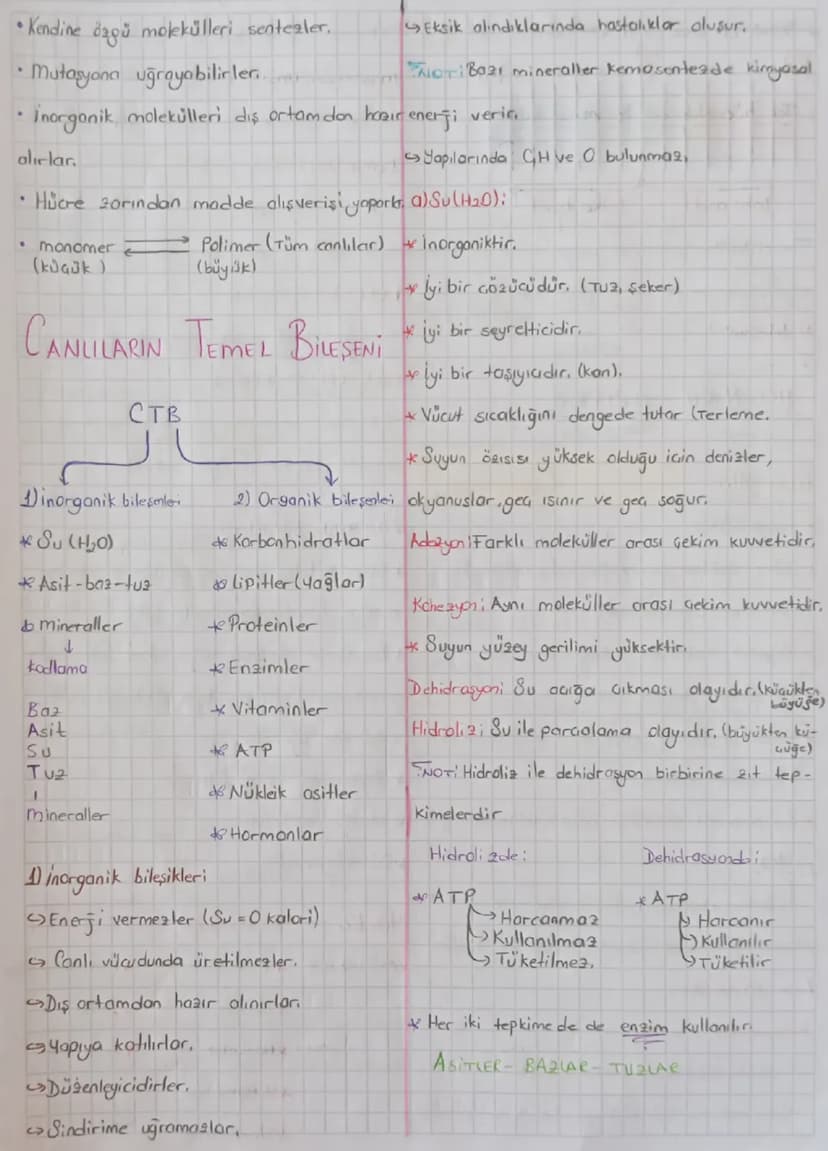 • Kendine özgü molekülleri sentezler.
• Mutasyona uğrayabilirler.
• inorganik molekülleri dış ortamdan hazır
alırlar.
• Hücre zarından madde alışverişi yapark
• monomer ⇌ Polimer (Tüm canlılar)
(küçük) (büyük)
CANLILARIN TEMEL BİLEŞENİ
CTB
1) inorganik bileşenler
* Su (H₂O)
* Asit-baz-tuz
mineraller
↓
kodlama
Baz
Asit
Su
Tuz
ı
mineraller
2) Organik bileşenler
* Karbonhidratlar
* Lipitler (yağlar)
* Proteinler
* Enzimler
* Vitaminler
* ATP
* Nükleik asitler
* Hormonlar
1) inorganik bileşikleri
↪ Enerji vermezler (Su = 0 kalori)
↪ Canlı vücudunda üretilmezler.
↪ Dış ortamdan hazır alınırlar.
↪ Yapıya katılırlar.
↪ Düzenleyicidirler.
↪ Sindirime uğramazlar.
↪ Eksik alındıklarında hastalıklar oluşur.
NOT: Bazı mineraller kemosentezde kimyasal
enerji verir.
↪ Yapılarında C,H ve O bulunmaz.
a) Su (H2O):
* İnorganiktir.
* İyi bir çözücüdür. (Tuz, şeker)
* İyi bir seyrelticidir.
* İyi bir taşıyıcıdır. (kan).
* Vücut sıcaklığını dengede tutar (Terleme.
* Suyun özısısı yüksek olduğu için denizler,
okyanuslar, geç ısınır ve geç soğur.
Adezyon: Farklı moleküller arası çekim kuvvetidir.
Kohezyon: Aynı moleküller arası çekim kuvvetidir.
* Suyun yüzey gerilimi yüksektir.
Dehidrasyon: Su açığa çıkması olayıdır. (küçükten
büyüğe)
Hidroliz: Su ile parçalama olayıdır. (büyükten kü-
çüğe)
NOT: Hidroliz ile dehidrasyon birbirine zıt tep-
kimelerdir
Hidrolizde:
* ATP
↪ Harcanmaz
↪ Kullanılmaz
↪ Tüketilmez.
Dehidrasyonda:
* ATP
↪ Harcanır
↪ Kullanılır
↪ Tüketilir
* Her iki tepkimede de enzim kullanılır.
ASİTLER - BAZLAR - TUZLAR